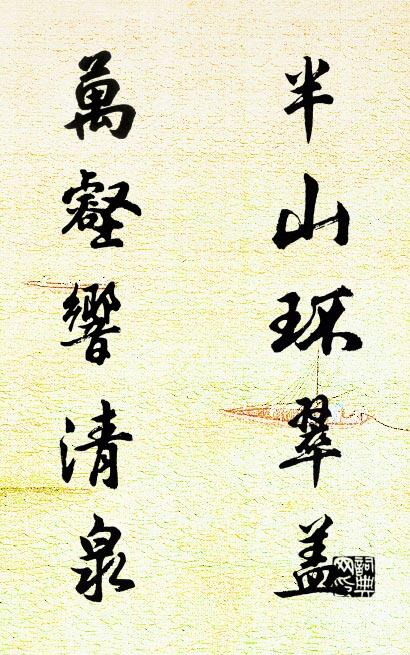 半山环翠盖
萬壑響清泉
詞典
网印